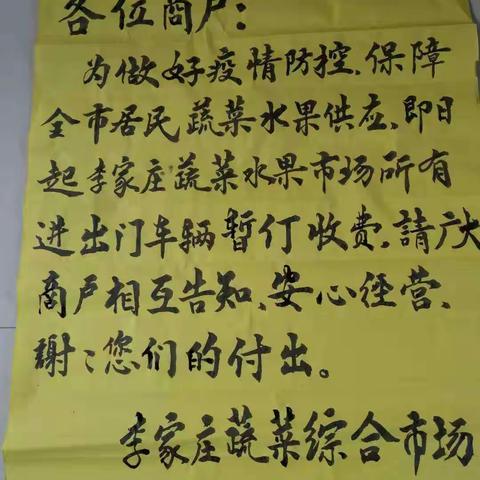 各位商户：
为做好疫情防控、保障
全市居民蔬菜水果供应、即日
起李家庄蔬菜水果市场所有
进出门车辆暂仃收费、請广大
商户相互告知、安心经营、
謝〻您们的付出。
李家庄蔬菜综合市场